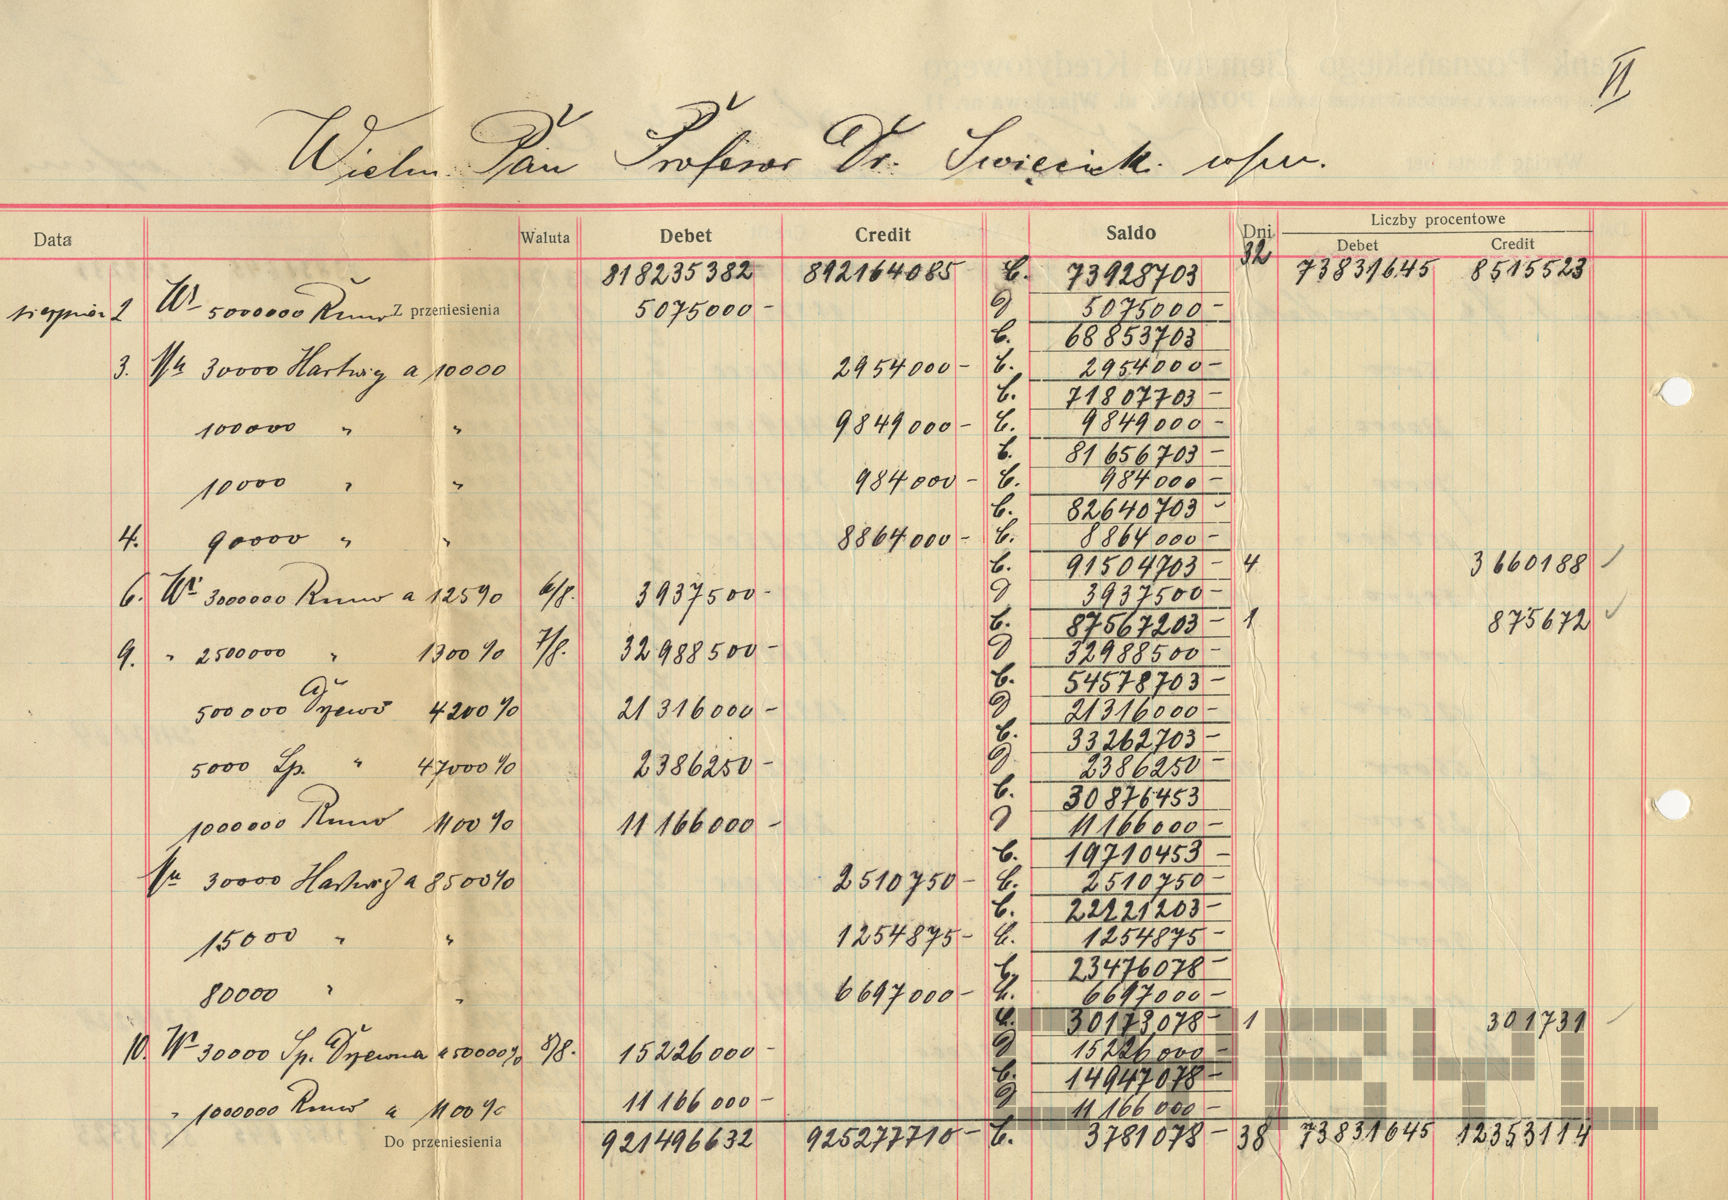 II
Wielm. Pan Profesor Dr. Święcicki w/m.
Data Waluta Debet Credit Saldo Dni Liczby procentowe
Debet Credit
818235382 892164085 C. 73928703 32 73831645 8515523
sierpnia 2 Wr 5000000 Runo Z przeniesienia 5075000 - D 5075000 -
C. 68853703
3. Ma 30000 Hartwig a 10000 2954000 - C. 2954000 -
C. 71807703 -
100000 " " 9849000 - C. 9849000 -
C. 81656703 -
10000 " " 984000 - C. 984000 -
C. 82640703 -
4. 90000 " " 8864000 - C. 8864000 -
C. 91504703 - 4 3660188
6. Wr 3000000 Runo a 125% 6/8. 3937500 - D 3937500 -
C. 87567203 - 1 875672
9. " 2500000 " 1300% 7/8. 32988500 - D 32988500 -
C. 54578703 -
500000 Drzewo 4200% 21316000 - D 21316000 -
C. 33262703 -
5000 Sp. " 47000% 2386250 - D 2386250 -
C. 30876453
1000000 Runo 1100% 11166000 - D 11166000 -
C. 19710453 -
Ma 30000 Hartwig a 8500% 2510750 - C. 2510750 -
C. 22221203 -
15000 " " 1254875 - C. 1254875 -
C. 23476078 -
80000 " " 6697000 - C. 6697000 -
C. 30173078 - 1 301731
10. Wr 30000 Sp. Drzewna a 50000% 8/8. 15226000 - D 15226000 -
C. 14947078 -
" 1000000 Runo a 1100% 11166000 - D 11166000 -
Do przeniesienia 921496632 925277710 - C. 3781078 - 38 73831645 12353114